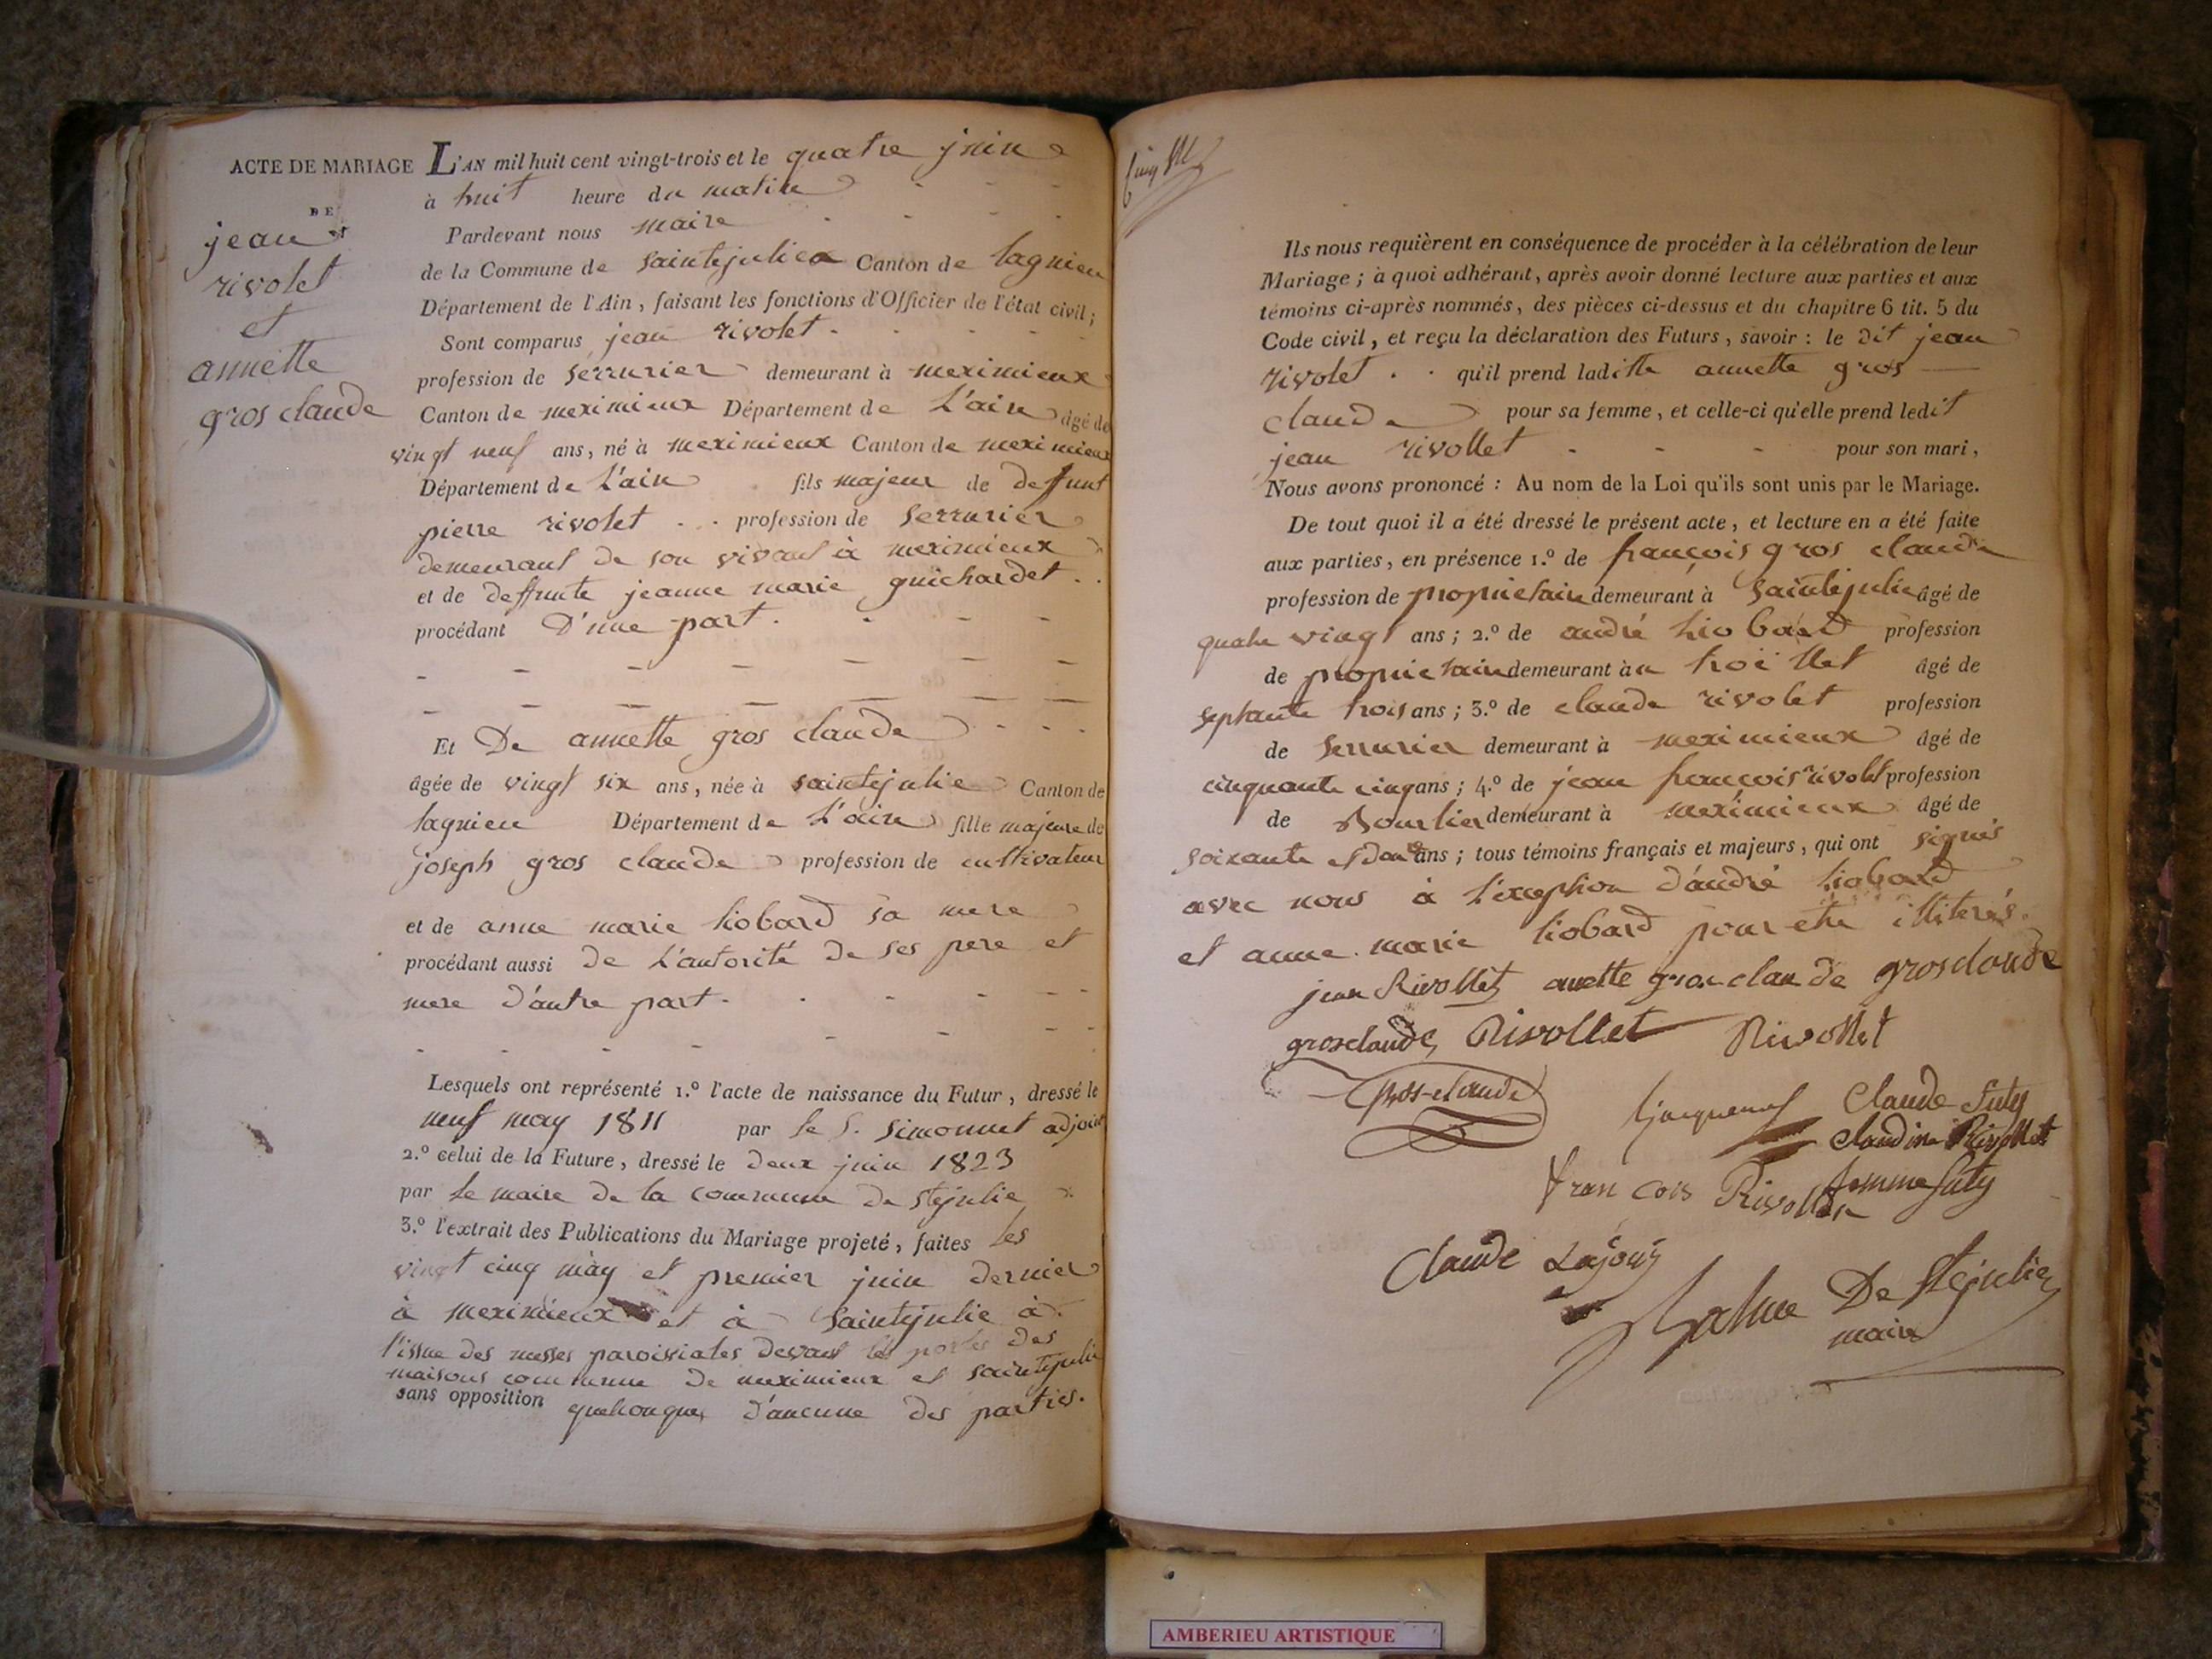 ACTE DE MARIAGE
DE
jean
rivolet
et
annette
gros claude
L'AN mil huit cent vingt-trois et le quatre juin
à huit heure du matin
Pardevant nous maire
de la Commune de saintejulie Canton de lagnieu
Département de l'Ain, faisant les fonctions d'Officier de l'état civil;
Sont comparus jean rivolet
profession de serrurier demeurant à meximieux
Canton de meximieux Département de L'ain âgé de
vingt neuf ans, né à meximieux Canton de meximieux
Département de L'ain fils majeur de deffunt
pierre rivolet profession de serrurier
demeurant de son vivant à meximieux
et de deffunte jeanne marie guichardet
procédant D'une part.
Et De annette gros claude
âgée de vingt six ans, née à saintejulie Canton de
lagnieu Département de L'ain fille majeure de
joseph gros claude profession de cultivateur
et de anne marie liobard sa mere
procédant aussi de L'autorité de ses pere et
mere d'autre part.
Lesquels ont représenté 1.º l'acte de naissance du Futur, dressé le
neuf may 1811 par le S. simonnet adjoint
2.º celui de la Future, dressé le deux juin 1823
par le maire de la commune de stejulie
3.º l'extrait des Publications du Mariage projeté, faites les
vingt cinq may et premier juin dernier
à meximieux et à saintejulie à
l'issue des messes paroissiales devant les portes des
maisons commune de meximieux et saintejulie
sans opposition quelconque, d'aucune des parties.
Ils nous requièrent en conséquence de procéder à la célébration de leur
Mariage; à quoi adhérant, après avoir donné lecture aux parties et aux
témoins ci-après nommés, des pièces ci-dessus et du chapitre 6 tit. 5 du
Code civil, et reçu la déclaration des Futurs, savoir: le dit jean
rivolet qu'il prend laditte annette gros
claude pour sa femme, et celle-ci qu'elle prend ledit
jean rivollet pour son mari,
Nous avons prononcé: Au nom de la Loi qu'ils sont unis par le Mariage.
De tout quoi il a été dressé le présent acte, et lecture en a été faite
aux parties, en présence 1.º de françois gros claude
profession de proprietaire demeurant à saintejulie âgé de
quatre vingt ans; 2.º de andré liobard profession
de proprietaire demeurant à âgé de
septante trois ans; 3.º de claude rivolet profession
de serrurier demeurant à meximieux âgé de
cinquante cinq ans; 4.º de jean françois rivolet profession
de Bourlier demeurant à meximieux âgé de
soixante et deux ans; tous témoins français et majeurs, qui ont signés
avec nous à L'exception d'andré liobard
et anne marie liobard pour etre illiterés.
jean Rivollet anette grosclaude grosclaude
grosclaude Rivollet Rivollet
Gros-claude
Jacquemet Claude Suty
claudine Rivollet
femme Suty
françois Rivollet
Claude
De Stejulie
maire
AMBERIEU ARTISTIQUE